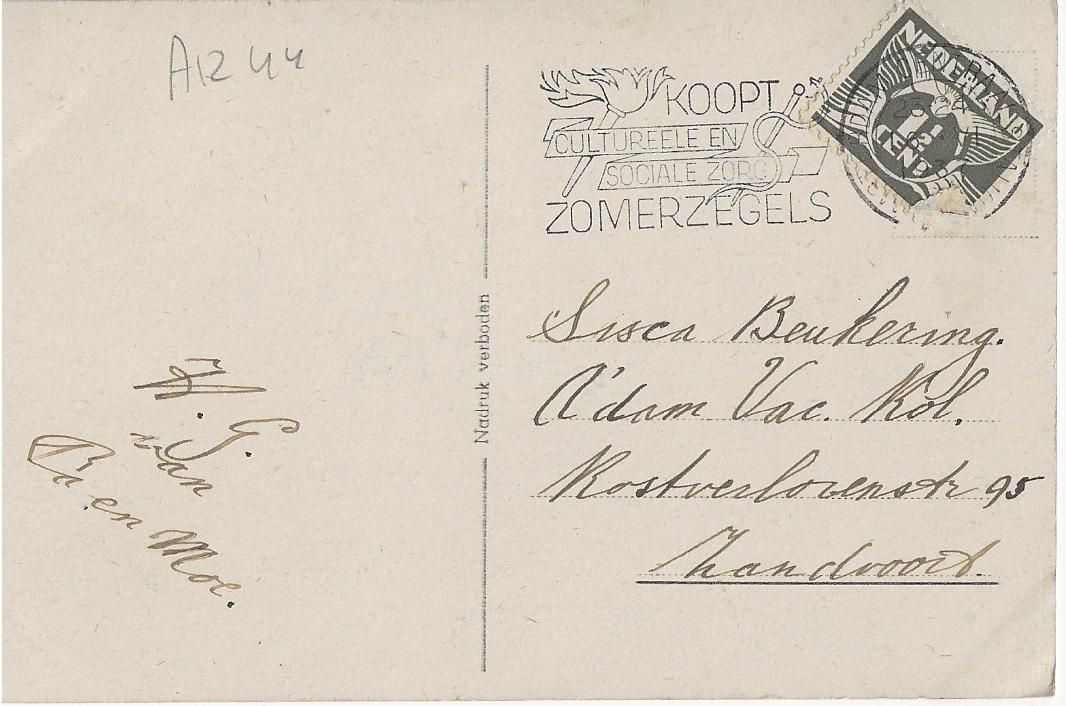 AR 44
KOOPT
CULTUREELE EN
SOCIALE ZORG
ZOMERZEGELS
NEDERLAND
1½
CENT
Nadruk verboden
H. G.
van
Pa en Moe.
Sisca Beukering.
A'dam Vac. Kol.
Kostverlorenstr 95
Zandvoort.